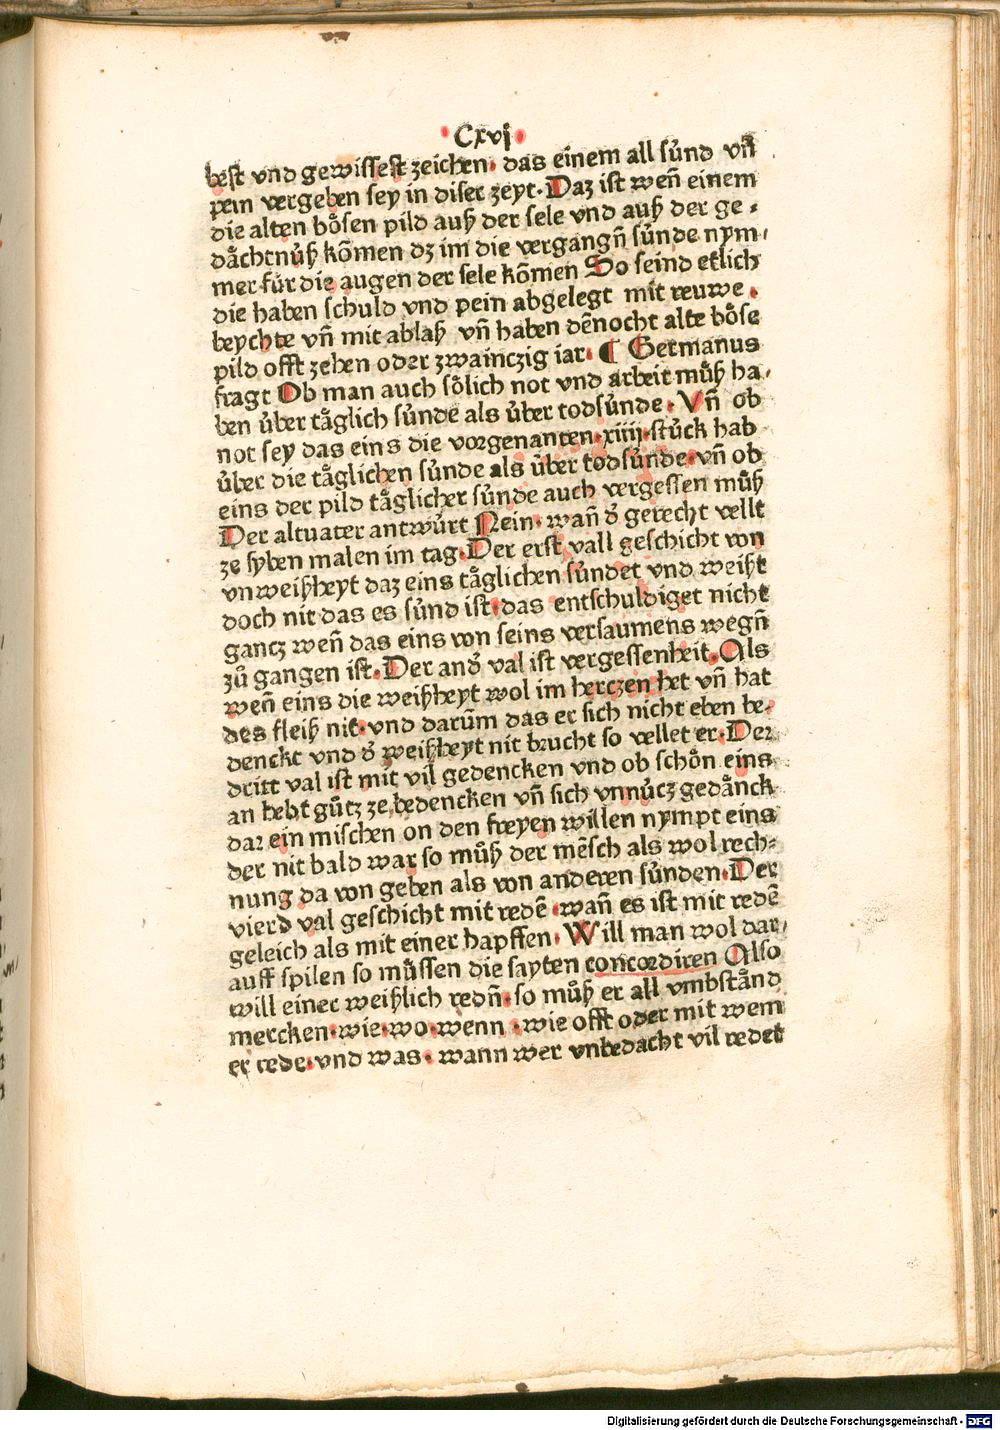 ·Cxvj·
best vnd gewissest zeichen· das einem all sůnd vñ
pein vergeben sey in diser zeyt· Daz ist weñ einem
die alten bősen pild auß der sele vnd auß der ge⸗
dåchtnůß kõmen dz im die vergangñ sůnde nym⸗
mer für die augen der sele kõmen So seind etlich
die haben schuld vnd pein abgelegt mit reuwe·
beychte vñ mit ablaß vñ haben dẽnocht alte bőse
pild offt zehen oder zwainczig iar· ¶ Germanus
fragt Ob man auch sőlich not vnd arbeit můß ha⸗
ben ůber tåglich sůnde als ůber todsůnde· Vñ ob
not sey das eins die vorgenanten·xiiij·stůck hab
ůber die tåglichen sůnde als ůber todsůnde·vñ ob
eins der pild tåglicher sůnde auch vergessen můß
Der altuater antwůrt Nein· wañ d̕ gerecht vellt
ze syben malen im tag·Der erst vall geschicht von
vnweißheyt daz eins tåglichen sůndet vnd weißt
doch nit das es sůnd ist·das entschuldiget nicht
gancz weñ das eins von seins versaumens wegñ
zů gangen ist·Der and̕ val ist vergessenheit·Als
weñ eins die weißheyt wol im herczen het vñ hat
des fleiß nit·vnd darũm das er sich nicht eben be⸗
denckt vnd d̕ weißheyt nit brucht so vellet er·Der
dritt val ist mit vil gedencken vnd ob schőn eins
an hebt gůtz ze bedencken vñ sich vnnůcz gedånck
dar ein mischen on den freyen willen nympt eins
der nit bald war so můß der mẽsch als wol rech⸗
nung da von geben als von anderen sůnden·Der
vierd val geschicht mit redẽ·wañ es ist mit redẽ
geleich als mit einer harpffen· Will man wol dar⸗
auff spilen so můssen die sayten concordiren Also
will einer weißlich redñ·so můß er all vmbstånd
mercken·wie·wo·wenn·wie offt oder mit wem
er rede·vnd was· wann wer vnbedacht vil redet
Digitalisierung gefördert durch die Deutsche Forschungsgemeinschaft - DFG